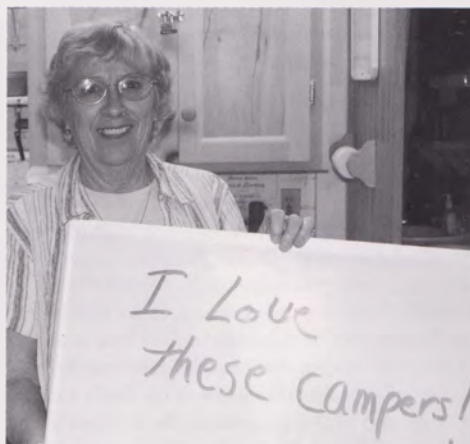 I Love
these Campers!